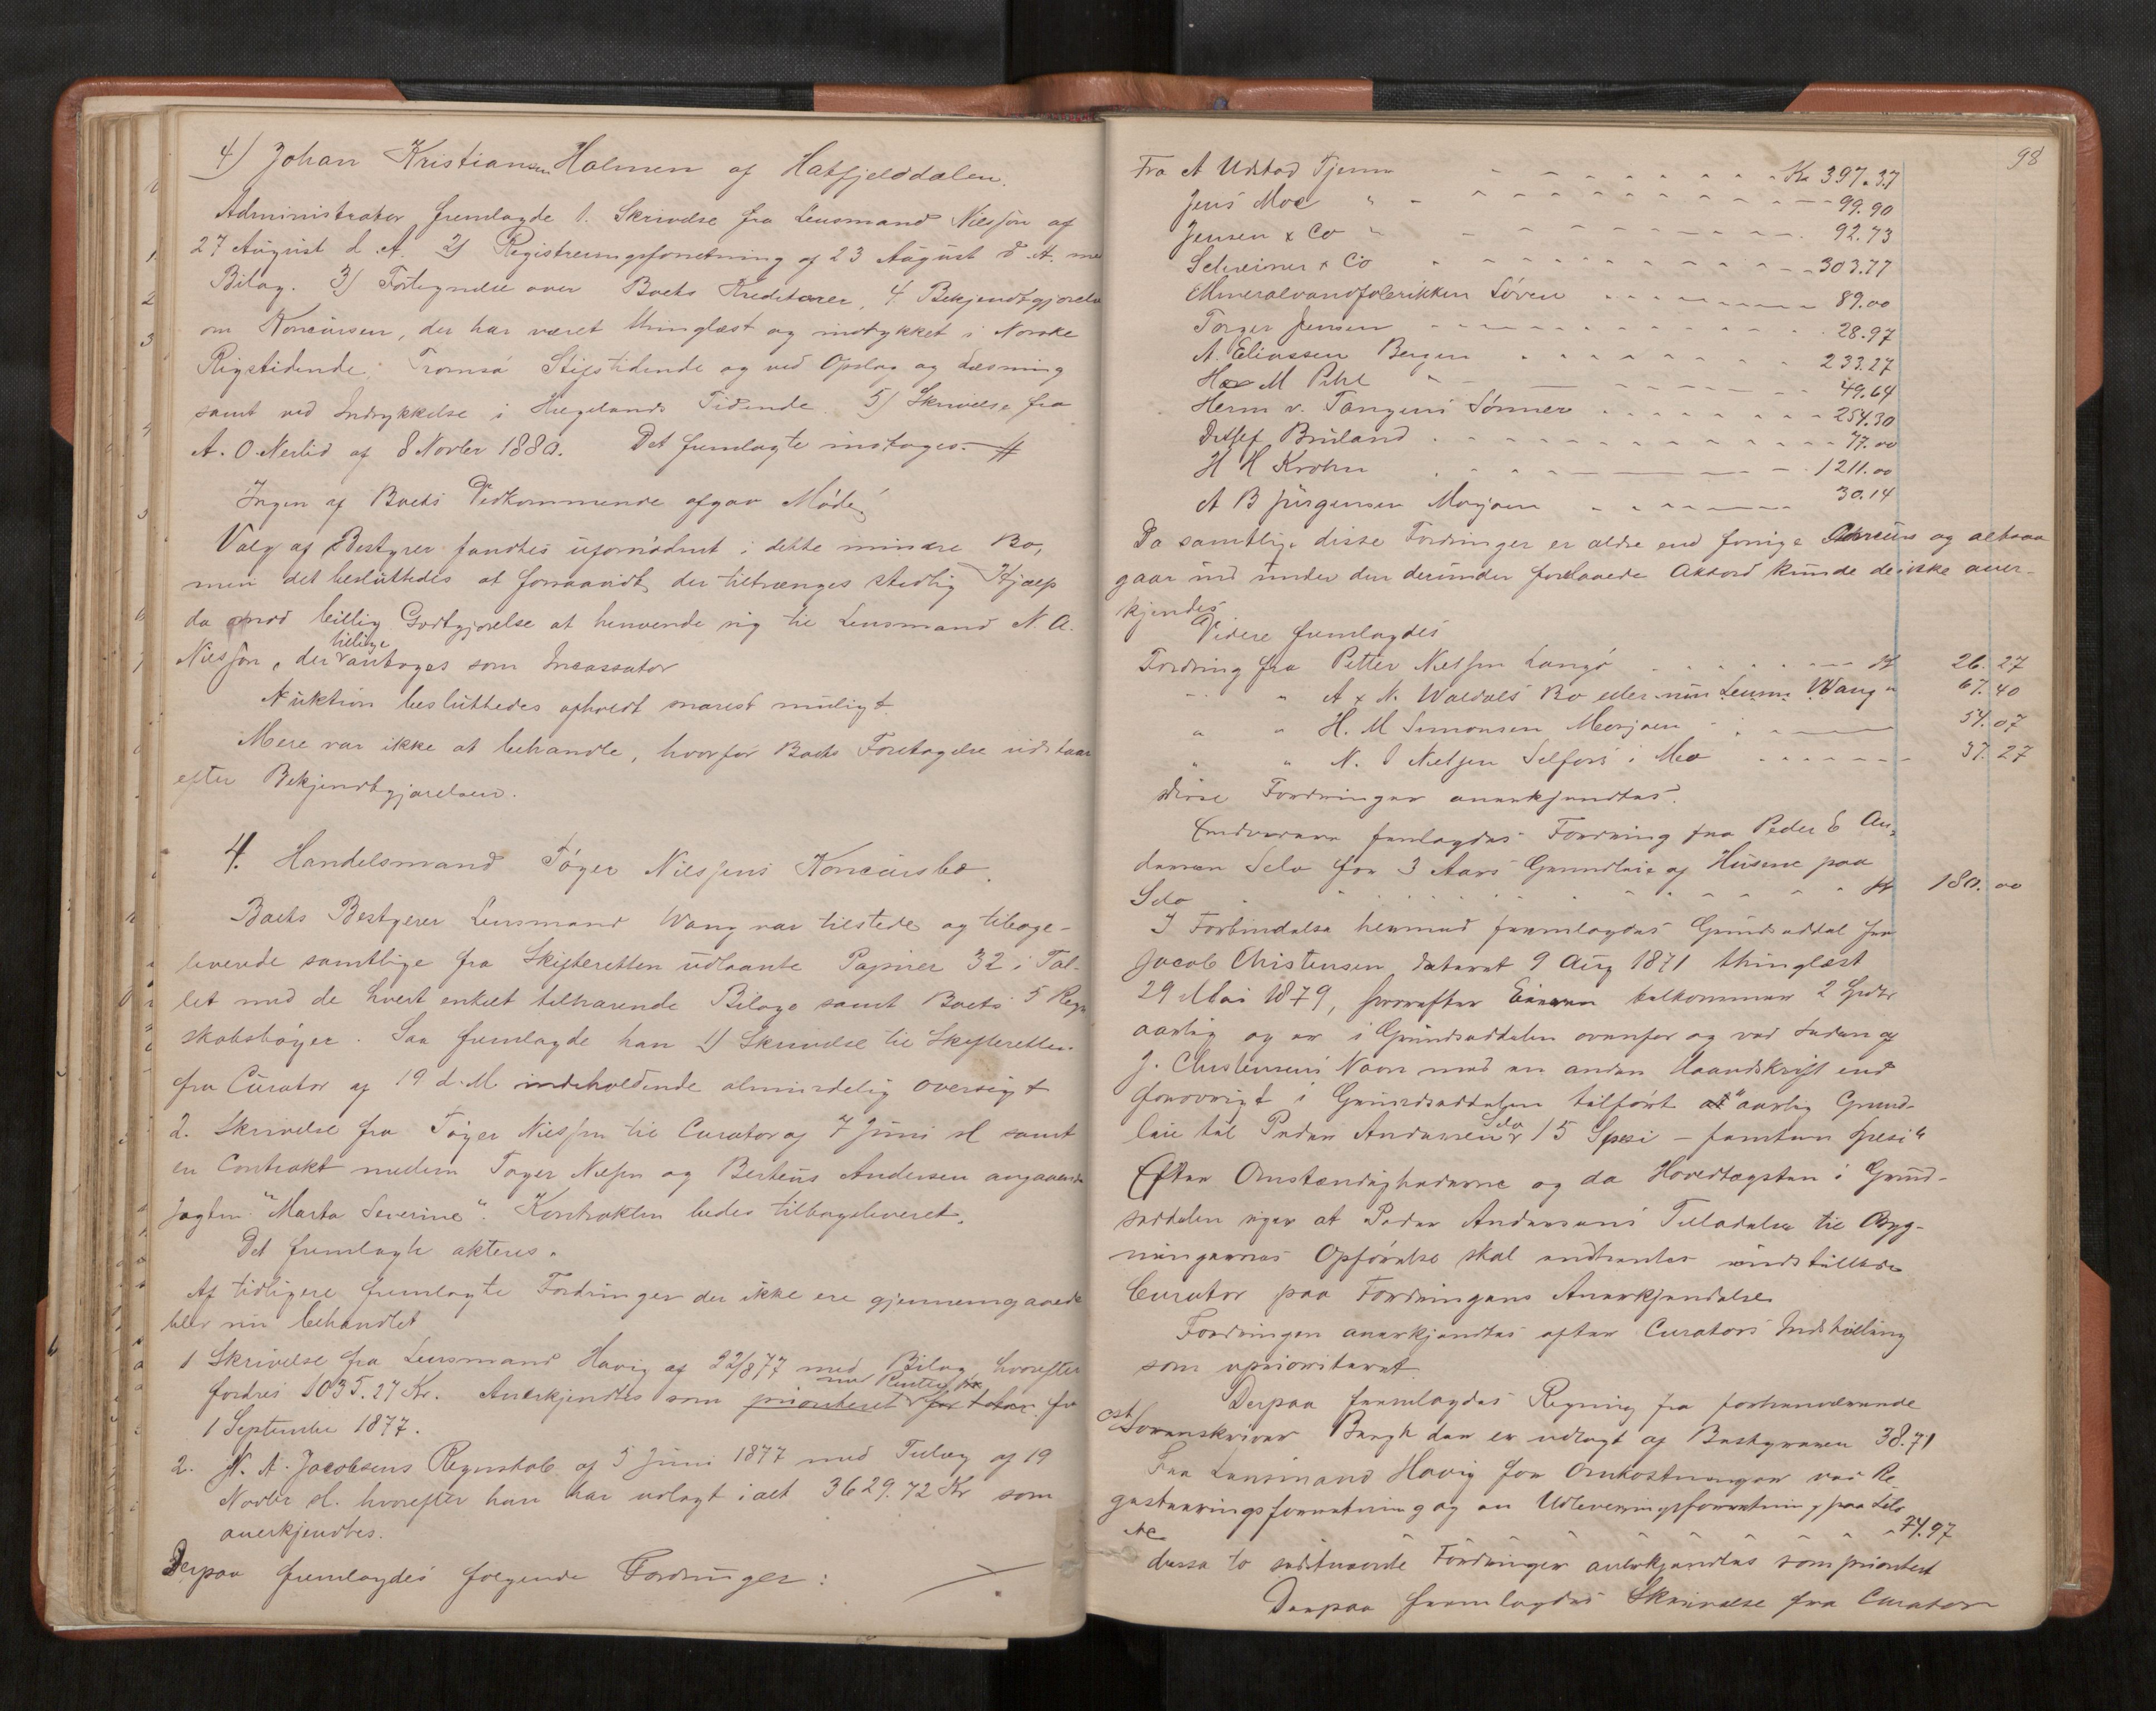 4) Johan Kristiansen Holmen af Hatfjelddalen.
Administrator fremlagde 1. Skrivelse fra Lensmand Nilssön af
27 August d. A. 2) Registreringsforretning af 23 August d. A. med
Bilag. 3) Fortegnelse over Boets Kreditorer, 4. Bekjendtgjörelse
om Koncursen, der har været thinglæst og indrykket i Norske
Rigstidende, Tromsö Stiftstidende og ved Opslag og Læsning
samt ved Indrykkelse i Helgelands Tidende. 5) Skrivelse fra
A. O. Nerlid af 8 Novbr 1880. Det fremlagte indtages. #
Ingen af Boets Vedkommende afgav Möde.
Valg af Bestyrer fandtes ufornödent i dette mindre Bo,
men det besluttedes at forsaavidt der tiltrænges stedlig Hjælp
da mod billig Godtgjörelse at henvende sig til Lensmand N. A.
Nilsson, der tillige antages som Incassator
Auktion besluttedes afholdt snarest muligt.
Mere var ikke at behandle, hvorfor Boets Foretagelse udstaar
efter Bekjendtgjörelsen.
4. Handelsmand Töger Nilssens Koncursbo.
Boets Bestyrer Lensmand Wang var tilstede og tilbage-
leverede samtlige fra Skifteretten udlaante Papirer 32 i Tal-
let med de hvert enkelt tilhörende Bilage samt Boets 5 Regn
skabsböger. Saa fremlagde han 1) Skrivelse til Skifteretten
fra Curator af 19 d. M. indeholdende almindelig oversigt
2. Skrivelse fra Töger Nilssen til Curator af 7 Juni d. samt
en Contrakt mellem Töger Nilssen og Berteus Andersen angaaende
Jagten "Marta Severine". Kontrakten bedes tilbageleveret.
Det fremlagte akteres.
Af tidligere fremlagte Fordringer der ikke ere gjennemgaaede
blev nu behandlet
1 Skrivelse fra Lensmand Havig af 22/8 77 med Bilag hvorefter
fordres 1035.27 Kr. Anerkjendtes som prioriteret med Renter fra
1 September 1877.
2. N. A. Jacobsens Regnskab af 5 Juni 1877 med Tillæg af 19
Novbr d. hvorefter han har udlagt ialt 3629.72 Kr som
anerkjendtes.
Derpaa fremlagdes fölgende Fordringer:
98
Fra A Udstad Tjenna Kr 397.37
Jens Moe " 99.90
Jensen & Co " 92.73
Schreiner & Co 303.77
Mineralvandfabrikken Löven 89.00
Torger Jensen 28.97
A. Eliassen Bergen 233.27
H M Pihl " 49.64
Herm v. Tangens Sönner 254.30
Detlef Bruland 77.00
H H Krohn 1211.00
A B Jürgensen Mosjøen 30.14
Da samtlige disse Fordringer er ældre end forrige Concurs og altsaa
gaar ind under den derunder Akkord kunde de ikke aner-
kjendes
Videre fremlagdes
Fordring fra Petter Nilssen Langö 26.27
" " A & N. Waldals Bo eller nu Lensm Wang " 67.40
" " H. M Simonsen Mosjøen 54.07
" " N. J Nilssen Selfors i Mo 37.27
disse Fordringer anerkjendtes.
Endvidere fremlagdes Fordring fra Peder E An-
dersen Selö for 3 Aars Grundleie af Husene paa
Selö 180.00
I Forbindelse hermed fremlagdes Grundseddel fra
Jacob Christensen dateret 9 Aug 1871 thinglæst
29 Mai 1879, hvorefter Eieren tilkommer 2 Spdlr
aarlig og er i Grundseddelen ovenfor og ved siden af
J. Christensens Navn med en anden Haandskrift end
forövrigt i Grundseddelen tilföiet at "aarlig Grund-
leie til Peder Andersen Selö 15 Spesi – femten Spesi"
Efter Omstændighederne og da Hovedtægsten i Grund-
seddelen siger at Peder Andersens Tilladelse til Byg-
ningernes Opförelse skal indhentes indstillede
Curator paa Fordringens Anerkjendelse
Fordringen anerkjendtes efter Curators Indstilling
som uprioriteret
Derpaa fremlagdes Regning fra forhenværende
cst Sorenskriver Bergh der er udlagt af Bestyreren 38.71
Fra Lensmand Havig for Omkostninger ved Re-
gistreringsforretning og en Udleveringsforretning paa Selö
74.97
disse to sidstnævnte Fordringer anerkjendtes som prioritert
Derpaa fremlagdes Skrivelse fra Curator